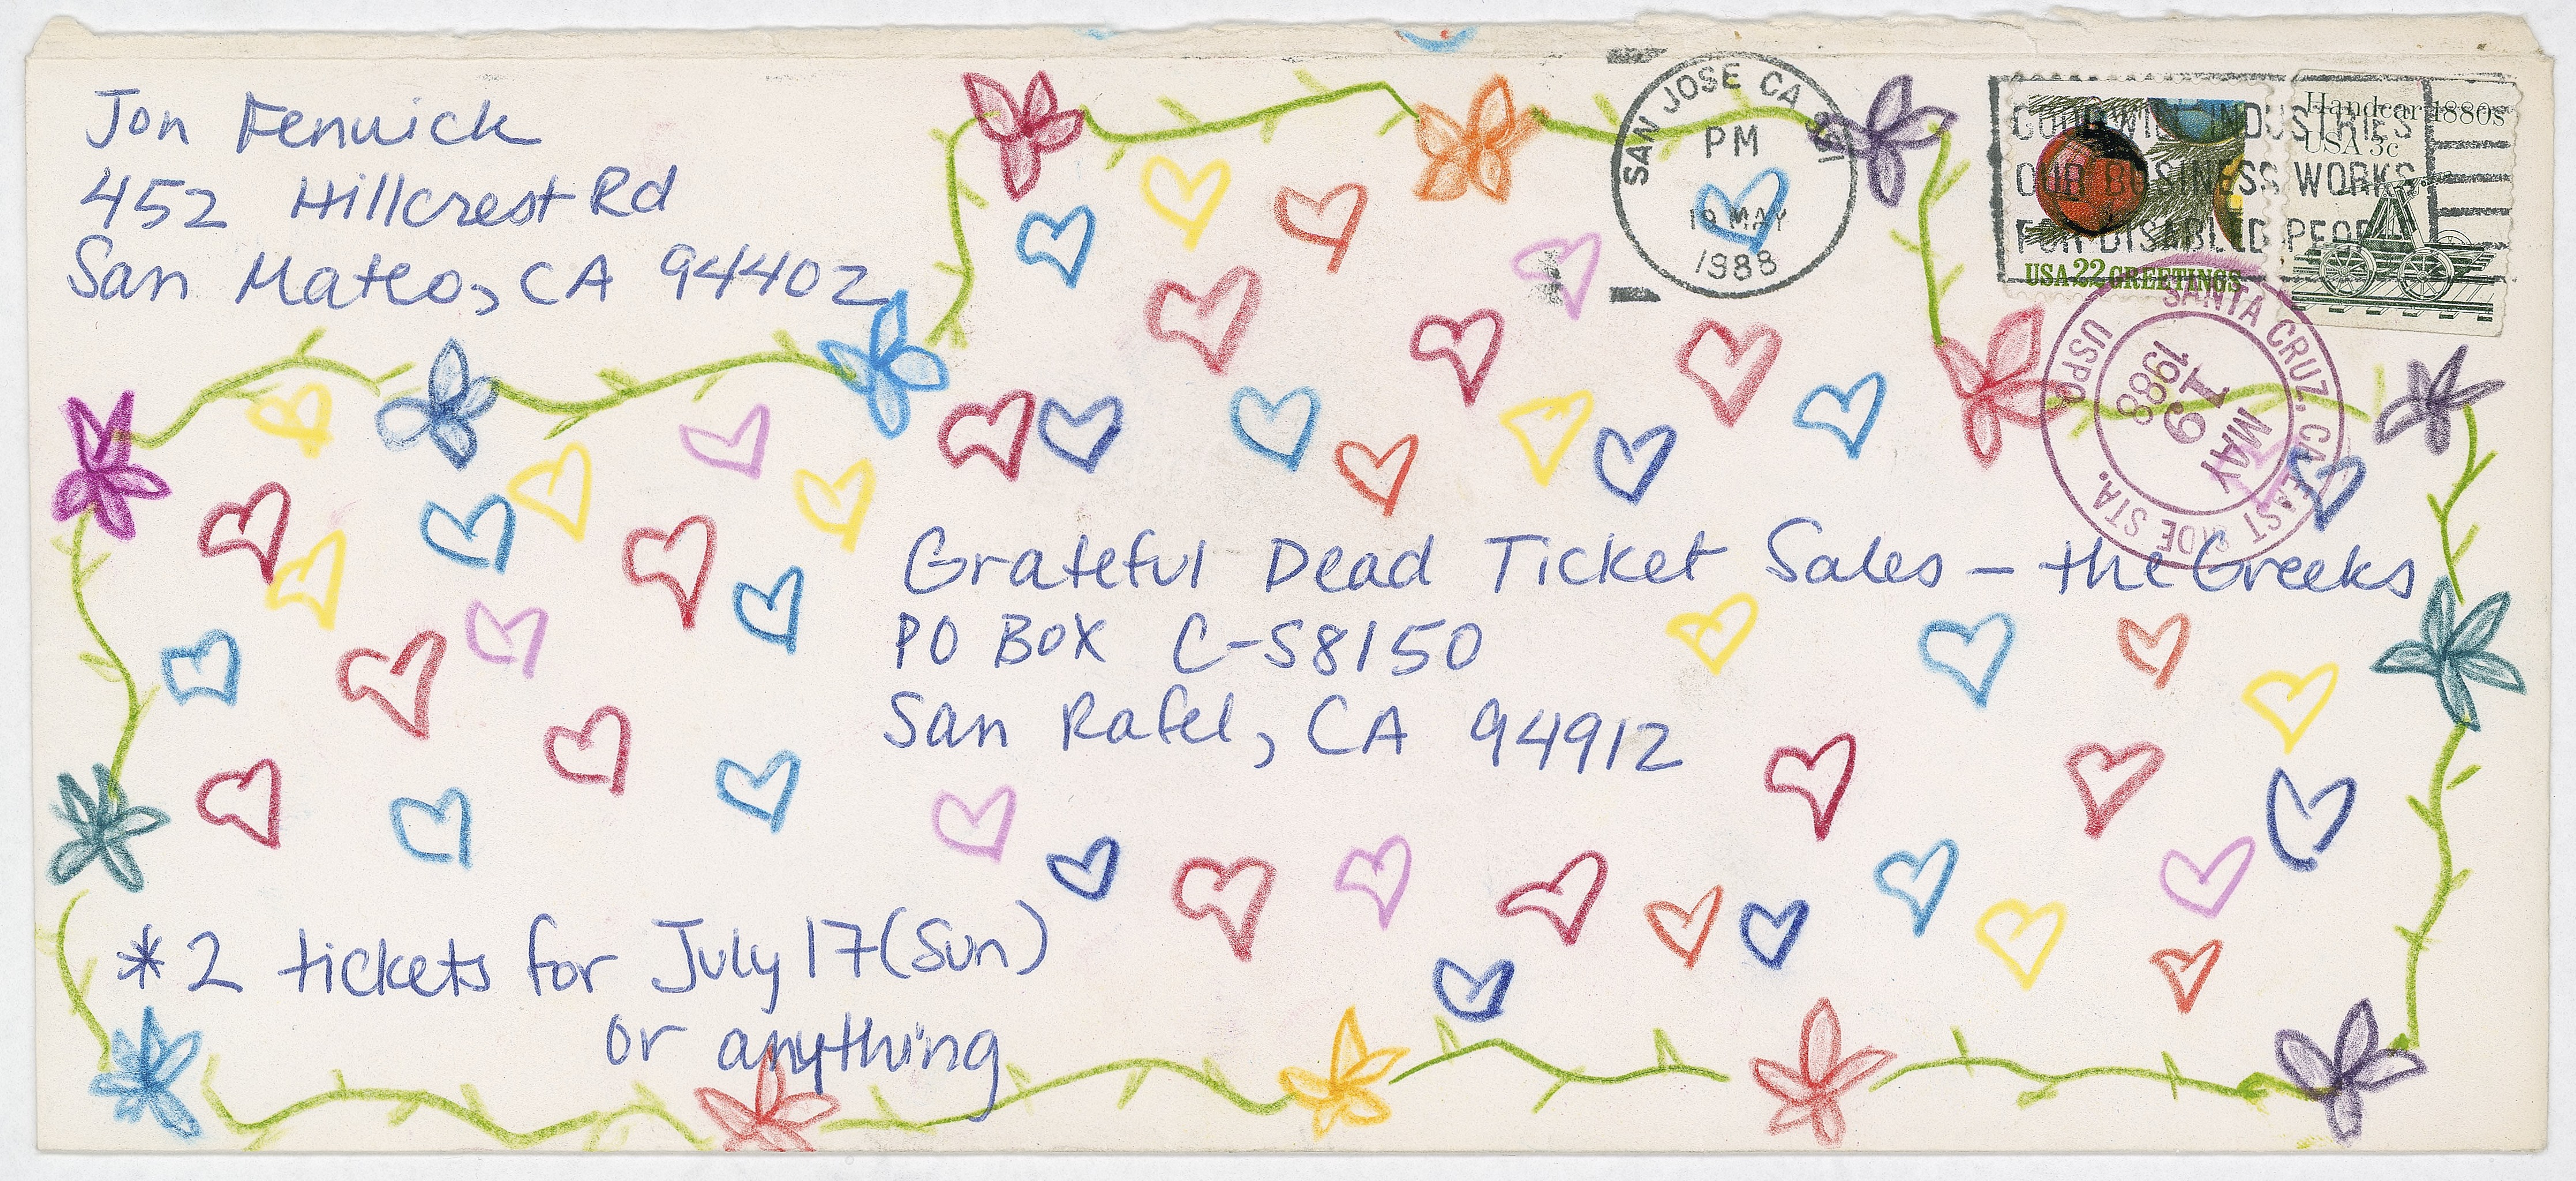 Jon Fenwick
452 Hillcrest Rd
San Mateo, CA 94402
SAN JOSE CA 951
PM
19 MAY
1988
GOODWILL INDUSTRIES
OUR BUSINESS WORKS
FOR DISABLED PEOPLE
USA 22 GREETINGS
Handcar 1880s
USA 3c
SANTA CRUZ, CA
EAST SIDE STA.
USPO
MAY
19
1988
Grateful Dead Ticket Sales – the Greeks
PO BOX C-S8150
San Rafel, CA 94912
*2 tickets for July 17 (Sun)
or anything